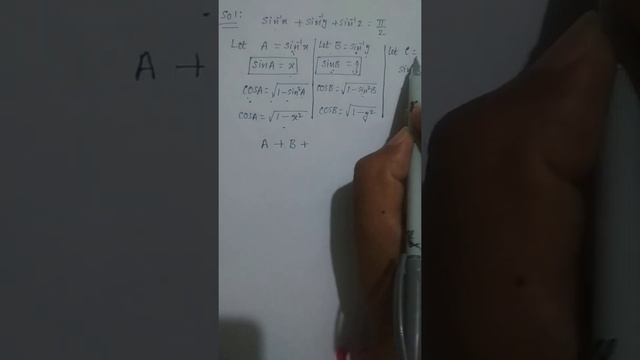 Sol:
sin⁻¹x + sin⁻¹y + sin⁻¹z = π/2
Let A = sin⁻¹x
sinA = x
cosA = √1-sin²A
cosA = √1-x²
Let B = sin⁻¹y
sinB = y
cosB = √1-sin²B
cosB = √1-y²
Let C =
sin
A + B +